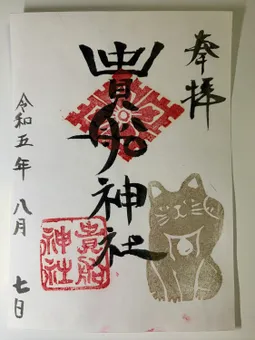 奉拝
貴船神社
貴船
神社
令和五年 八月 七日